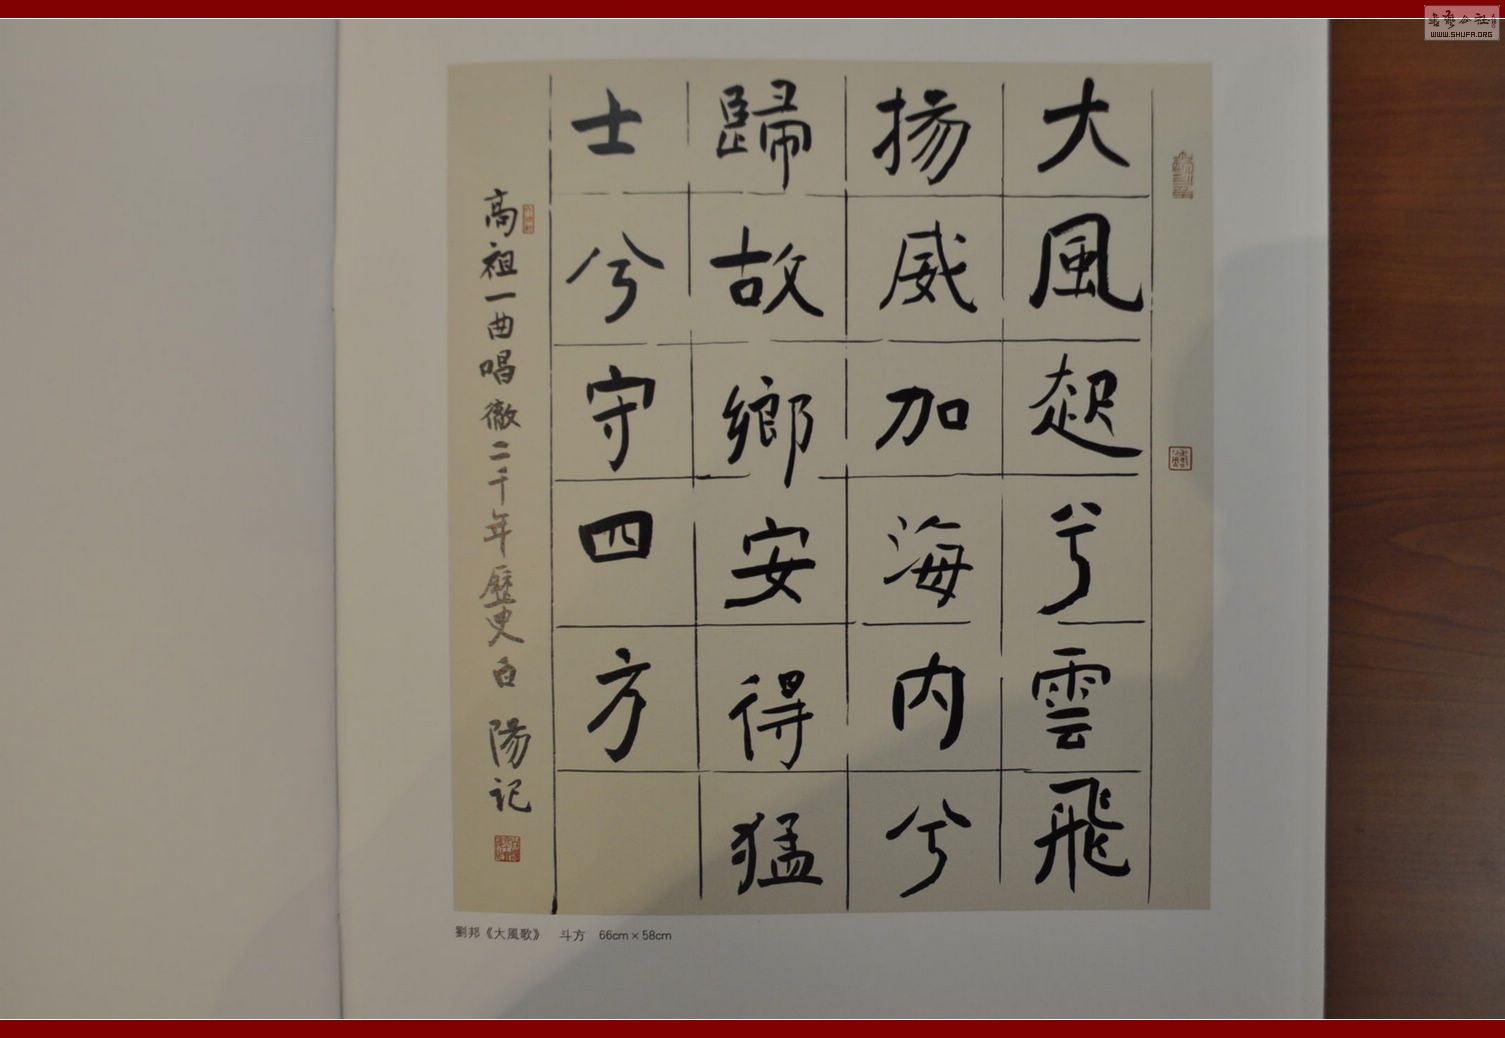 大風起兮雲飛
揚威加海內兮
歸故鄉安得猛
士兮守四方
高祖一曲唱徹二千年歷史 白陽記
劉邦《大風歌》 斗方 66cm×58cm
WWW.SHUFA.ORG